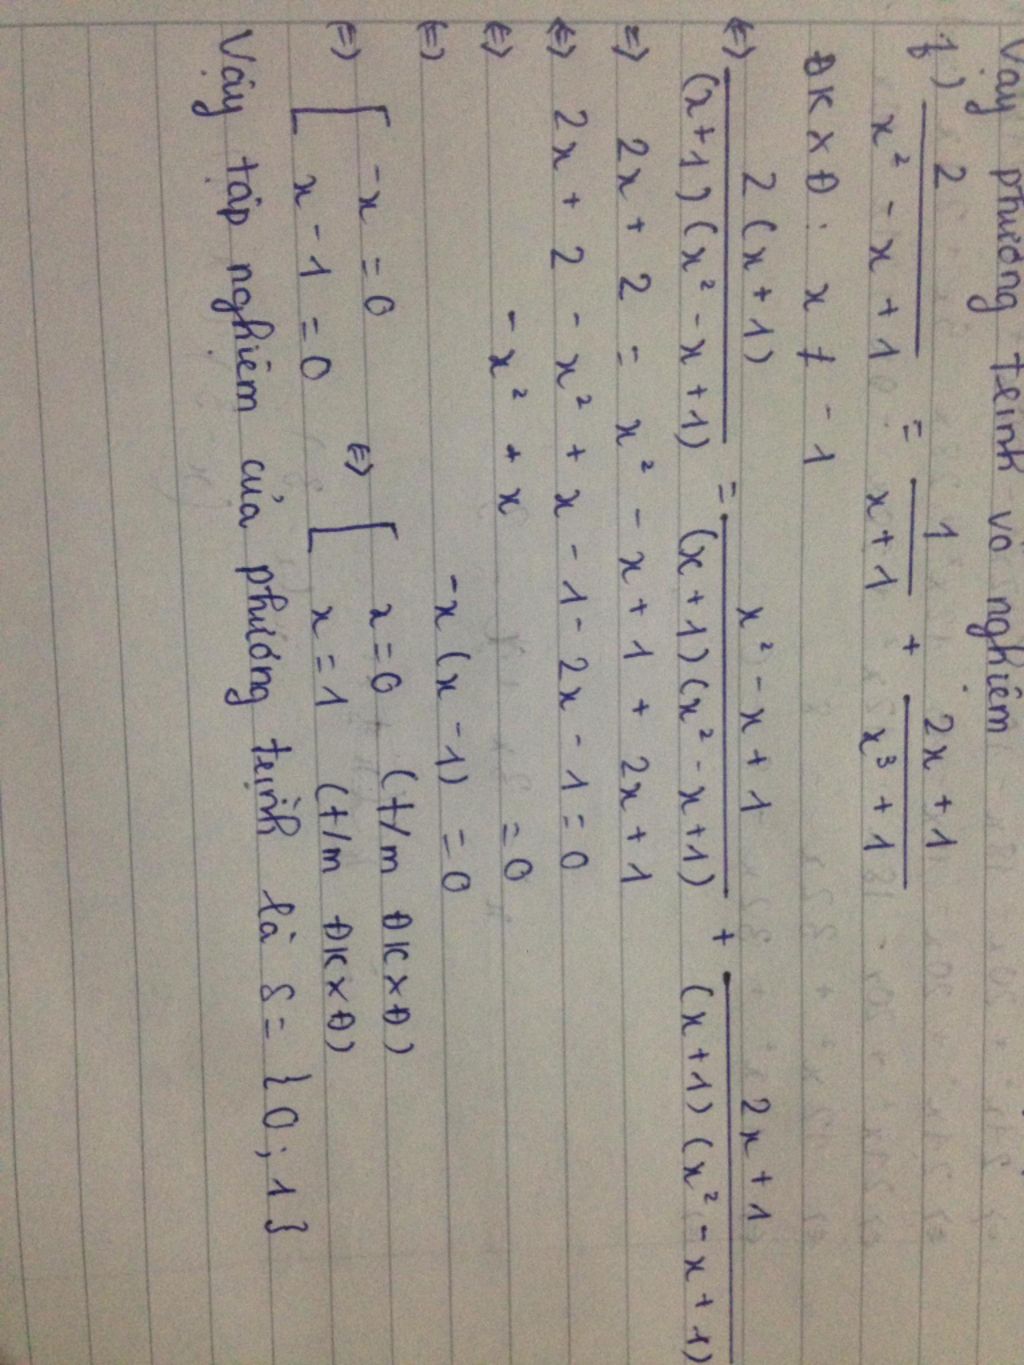 Vậy phương trình vô nghiệm
f) 2/(x² - x + 1) = 1/(x+1) + (2x+1)/(x³+1)
ĐKXĐ: x ≠ -1
⇔ 2(x+1)/((x+1)(x² - x +1)) = (x² - x + 1)/((x+1)(x² - x+1)) + (2x+1)/((x+1)(x² - x + 1))
⇒ 2x + 2 = x² - x + 1 + 2x + 1
⇔ 2x + 2 - x² + x - 1 - 2x - 1 = 0
⇔ - x² + x = 0
⇔ -x(x - 1) = 0
⇔ [ -x = 0 ⇔ [ x = 0 (t/m ĐKXĐ)
x - 1 = 0 x = 1 (t/m ĐKXĐ)
Vậy tập nghiệm của phương trình là S = {0; 1}